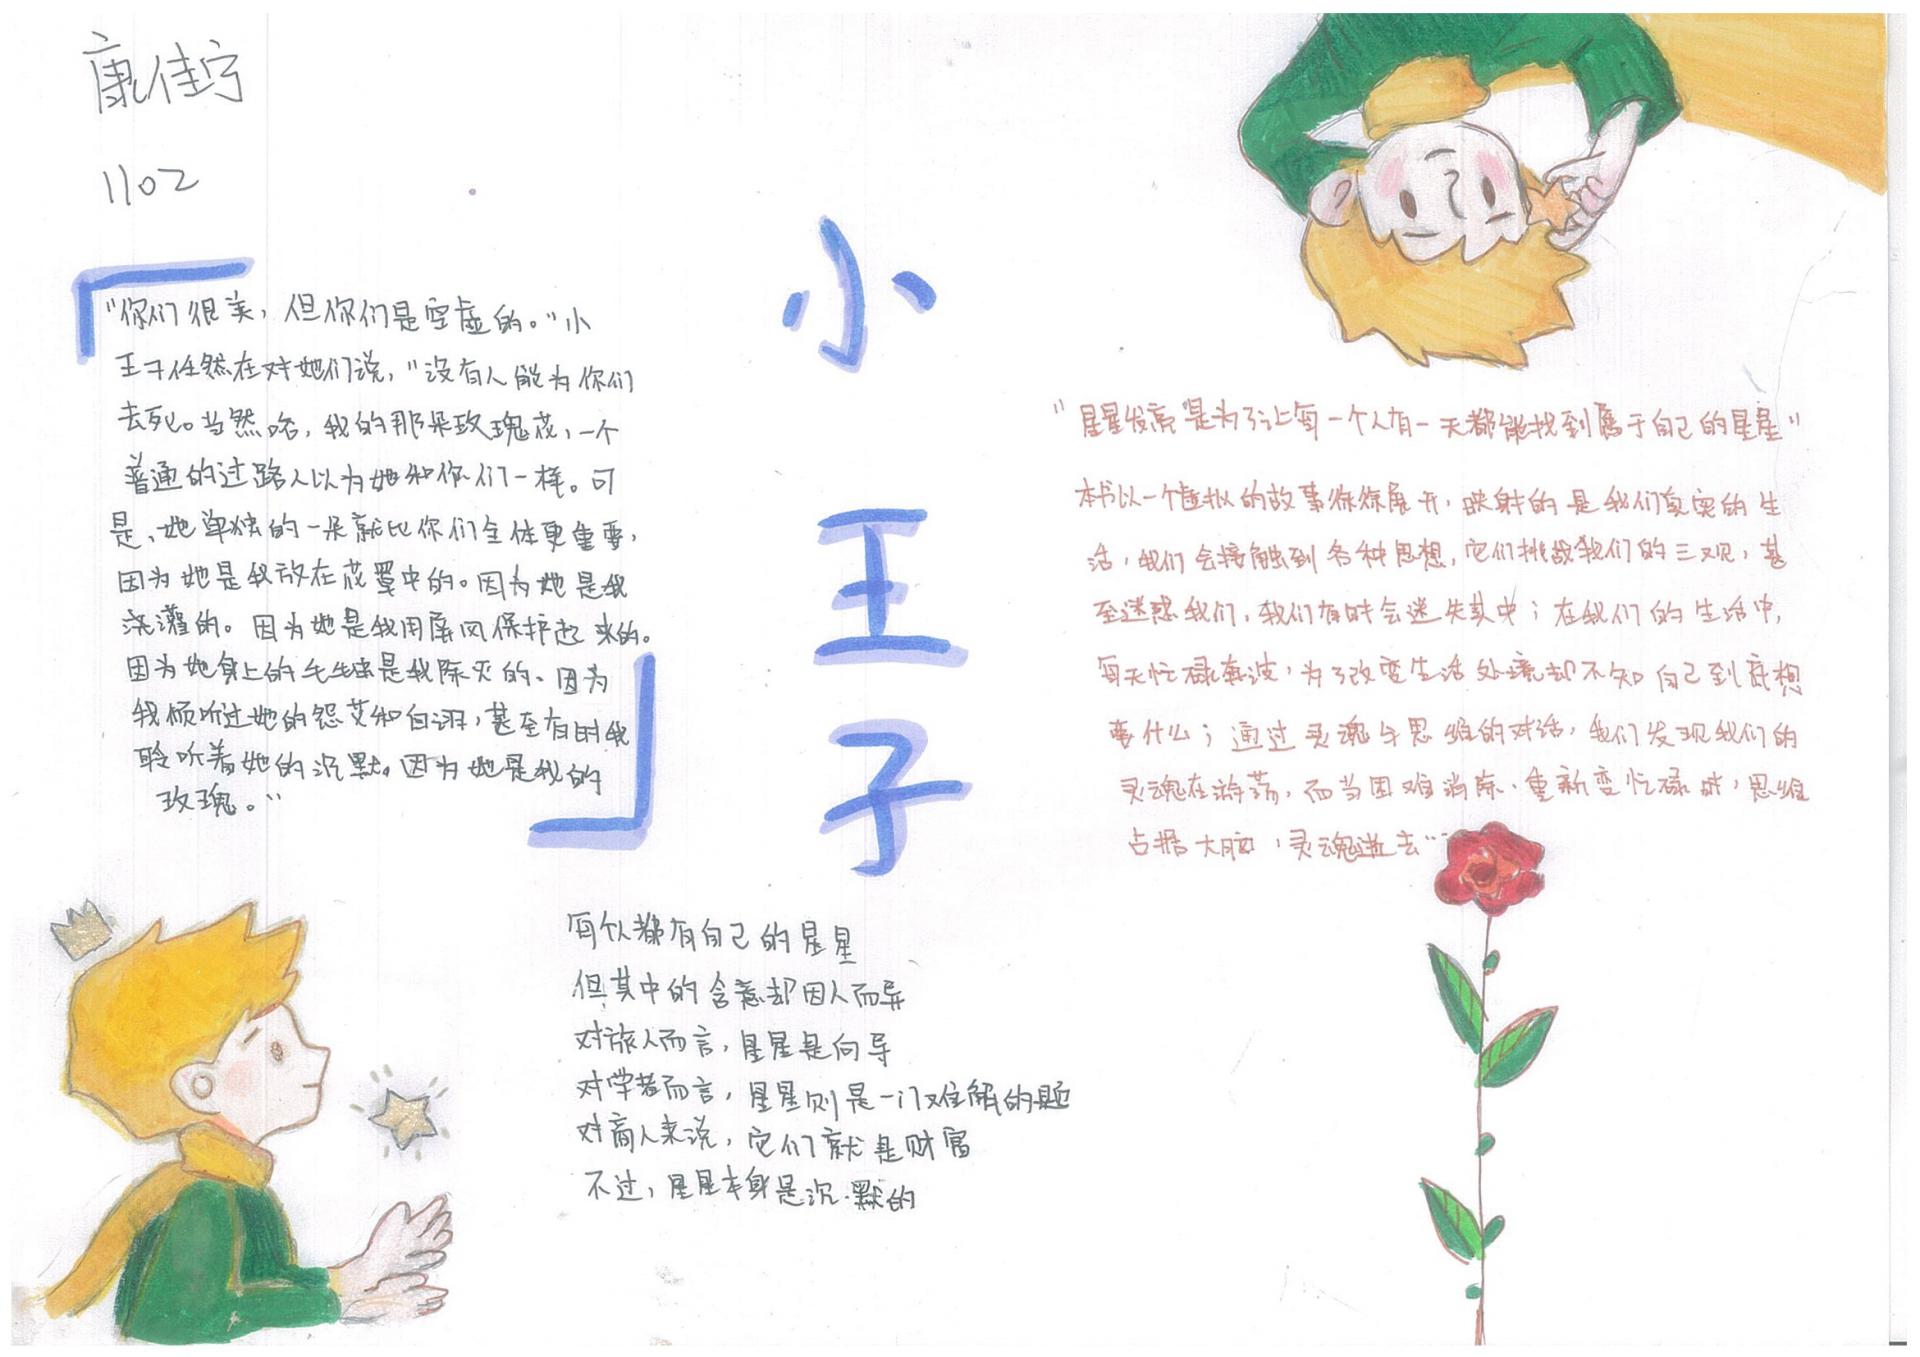 康佳宁
1102
"你们很美，但你们是空虚的。"小
王子任然在对她们说，"没有人能为你们
去死。当然啥，我的那朵玫瑰花，一个
普通的过路人以为她和你们一样。可
是，她单独的一朵就比你们全体更重要，
因为她是我放在花罩中的。因为她是我
浇灌的。因为她是我用屏风保护起来的。
因为她身上的毛虫是我除灭的、因为
我倾听过她的怨艾和自诩，甚至有时我
聆听着她的沉默。因为她是我的
玫瑰。"
小
王
子
每个人都有自己的星星
但其中的含意却因人而异
对旅人而言，星星是向导
对学者而言，星星则是一门难解的题
对商人来说，它们就是财富
不过，星星本身是沉默的
"星星发亮是为了让每一个人有一天都能找到属于自己的星星"
本书以一个虚拟的故事徐徐展开，映射的是我们真实的生
活，我们会接触到各种思想，它们挑战我们的三观，甚
至迷惑我们，我们有时会迷失其中；在我们的生活中，
每天忙碌奔波，为了改变生活处境却不知自己到底想
要什么；通过灵魂与思维的对话，我们发现我们的
灵魂在游荡，而当困难消除，重新变忙碌时，思维
占据大脑，灵魂逝去……